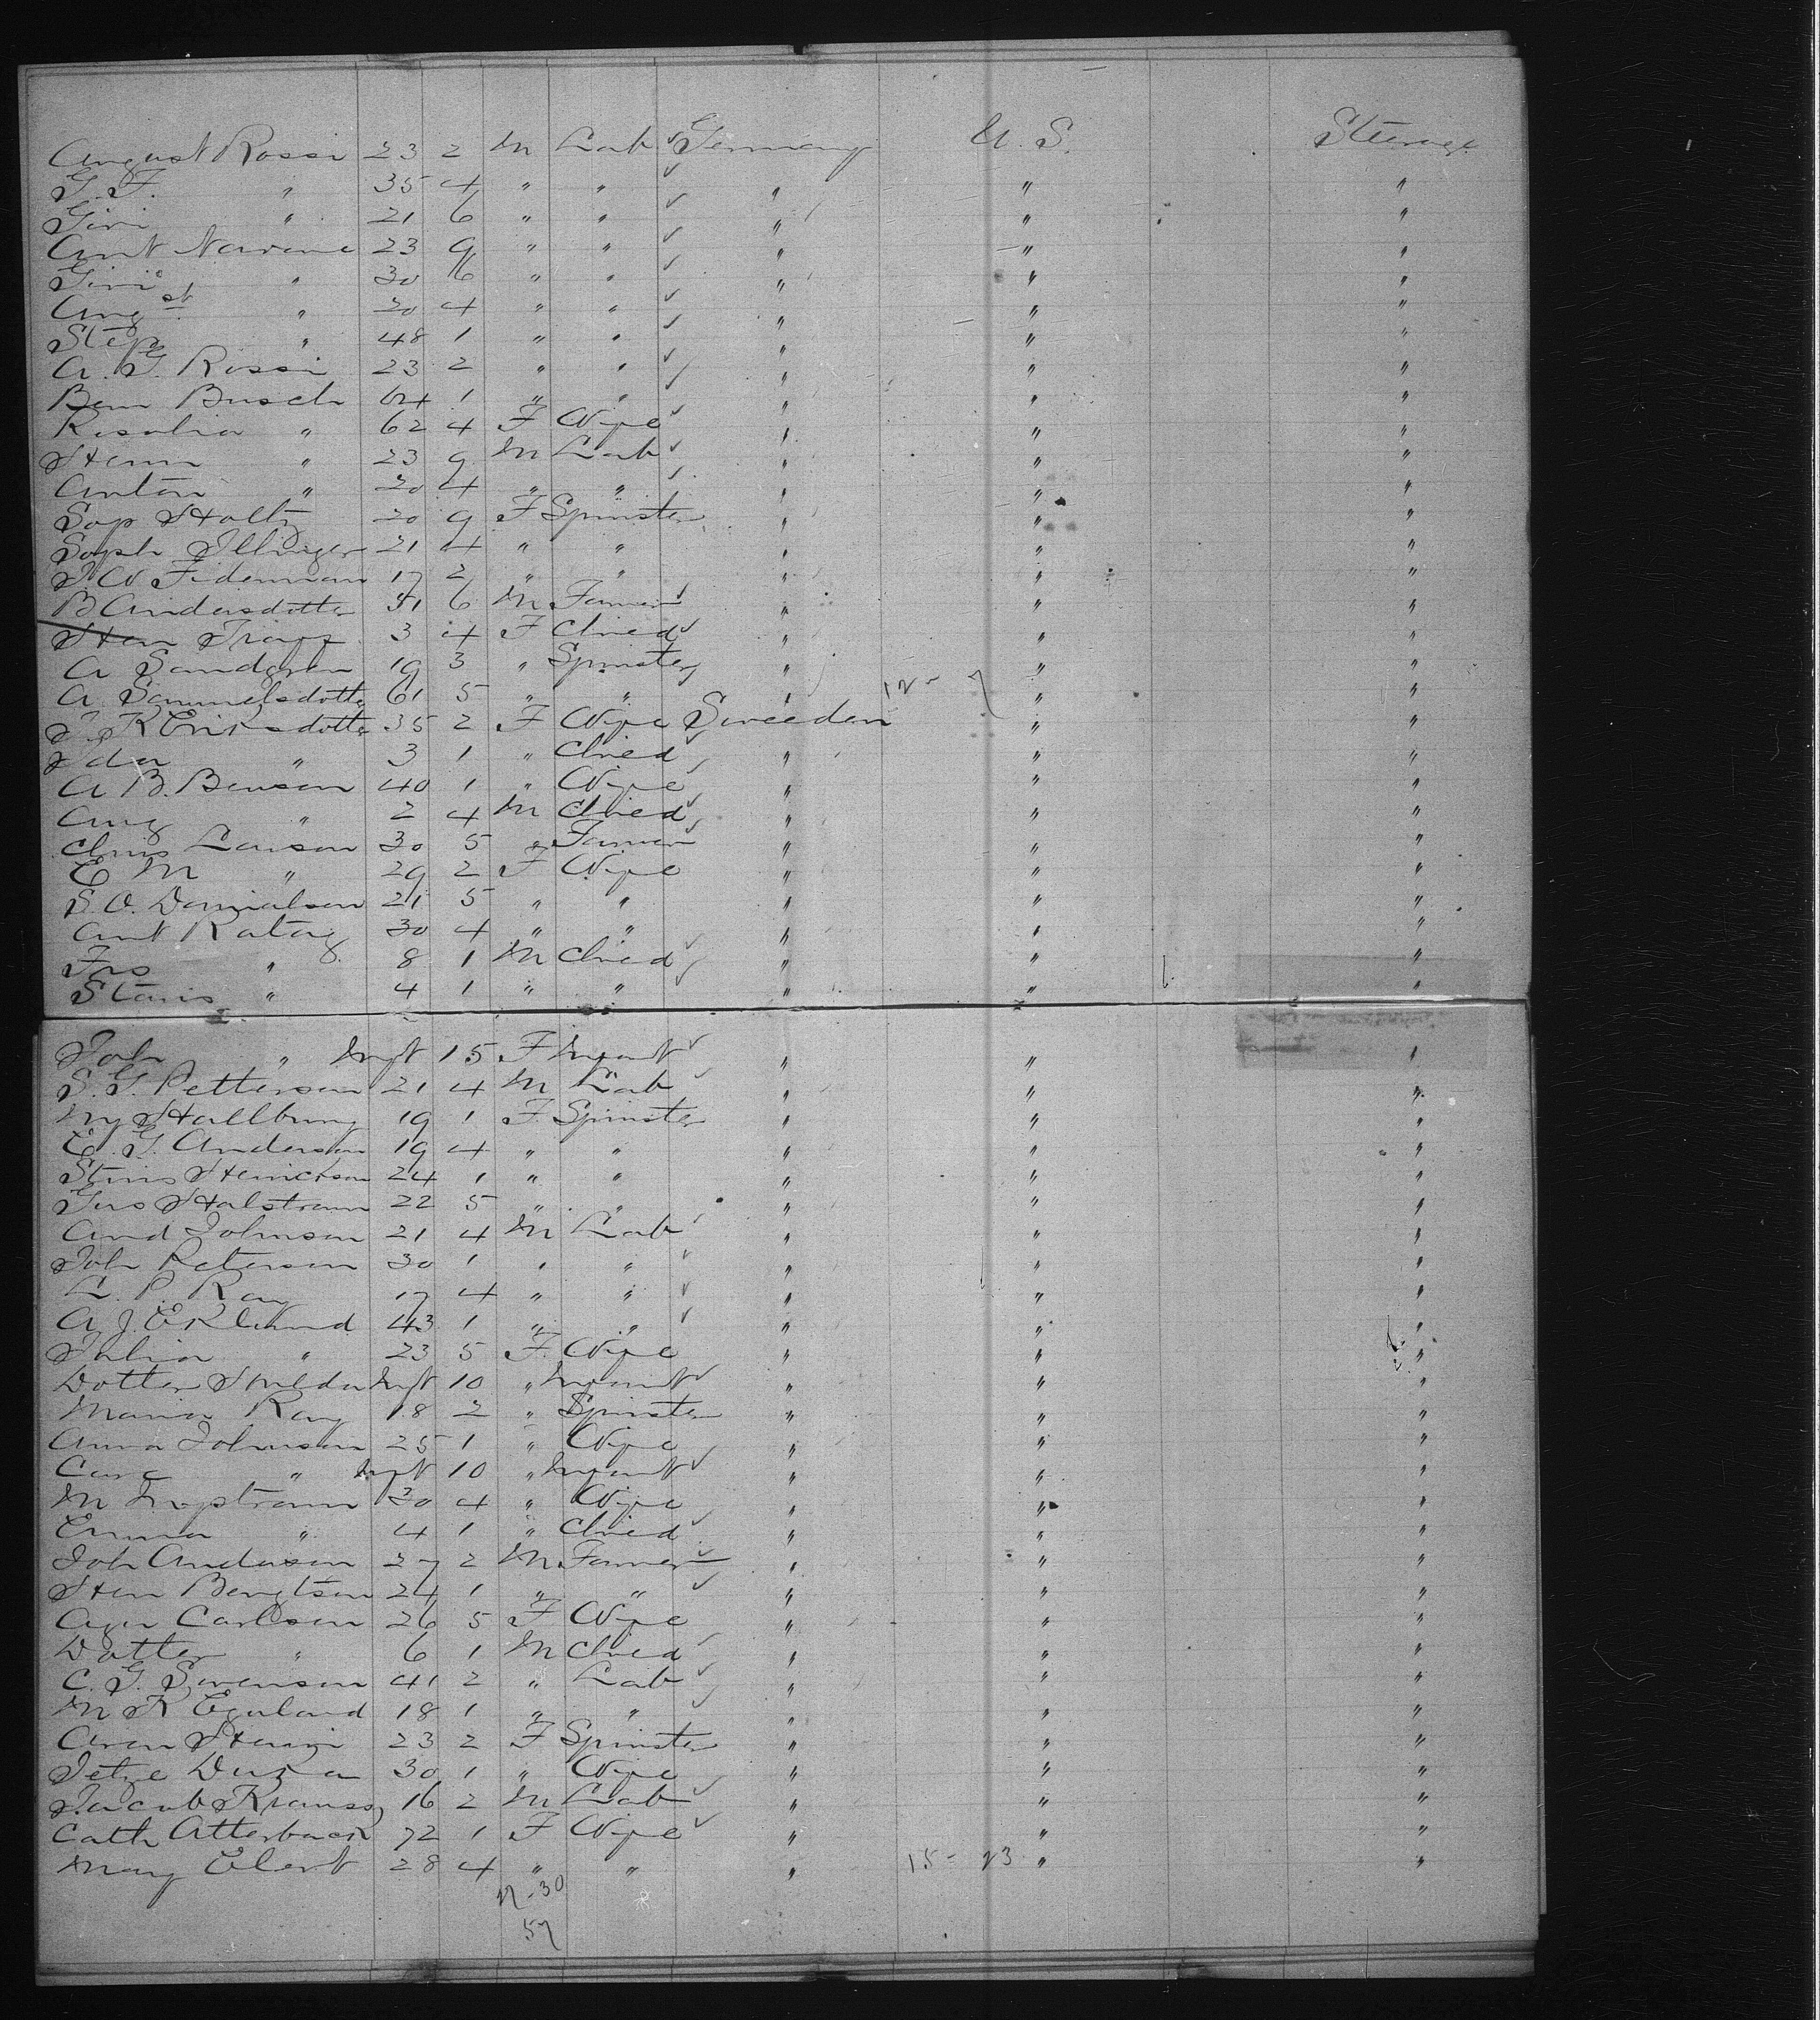 August Rossi 23 2 M Lab Germany U. S. Steerage
G. F. " 35 4 " " " " "
Giri " 21 6 " " " " "
Ant Navane 23 9 " " " " "
Giri " 30 6 " " " " "
Aug st " 20 4 " " " " "
Step " 48 1 " " " " "
A. G. Rossi 23 2 " " " " "
Ben Busch 64 1 " " " " "
Rosalia " 62 4 F Wife " " "
Herm " 23 9 M Lab " " "
Anton " 20 4 " " " " "
Sop Holtz 20 9 F Spinster " " "
Soph Illinger 21 4 " " " " "
J. W Fideman 17 2 " " " " "
B Andersdotter 31 6 M Farmer " " "
Hen 3 4 F Chied " " "
A Sandgren 19 3 " Spinster " " "
A. Sammelsdotter 61 5 " " " 12 - 7 " "
J. K Eriksdotter 35 2 F Wife Sweeden " "
Ida " 3 1 " Chied " " "
A B. Benson 40 1 " Wife " " "
Aug " 2 4 M Chied " " "
Chris Larson 30 5 " Farmer " " "
E M " 29 2 F Wife " " "
S. O. Danialson 21 5 " " " " "
Ant Rataz 30 4 " " " " "
Frs " 8 1 M Chied " " "
Stanis " 4 1 " " " " "
Joh " Inft 15 F Infant " " "
S. G. Petterson 21 4 M Lab " " "
My Hallburg 19 1 F. Spinster " " "
E. G. Anderson 19 4 " " " " "
Stinis Henickson 24 1 " " " " "
Gus Halstrom 22 5 " " " " "
And Johnson 21 4 M Lab " " "
Joh Peterson 30 1 " " " " "
L. P. Ray 17 4 " " " " "
A J. Eklund 43 1 " " " " "
Julia " 23 5 F. Wife " " "
Dotter Hulda Inft 10 " Infant " " "
Maria Ray 18 2 " Spinster " " "
Anna Johnson 25 1 " Wife " " "
Care " Inft 10 " Infant " " "
M Ingstrom 30 4 " Wife " " "
Emma " 4 1 " Chied " " "
Joh Anderson 27 2 M Farmer " " "
Hen Bengtson 24 1 " " " " "
Agn Carlson 26 5 F Wife " " "
Dotter " 6 1 M Chied " " "
C. G. Swenson 41 2 " Lab " " "
M K Eguland 18 1 " " " " "
Aren 23 2 F Spinster " " "
Jetze Duka 30 1 " Wife " " "
Jacob Krauss 16 2 M Lab " " "
Cath Atterback 72 1 F Wife " " "
Mary Elert 28 4 " " " 15 - 23 " "
27 - 30
57